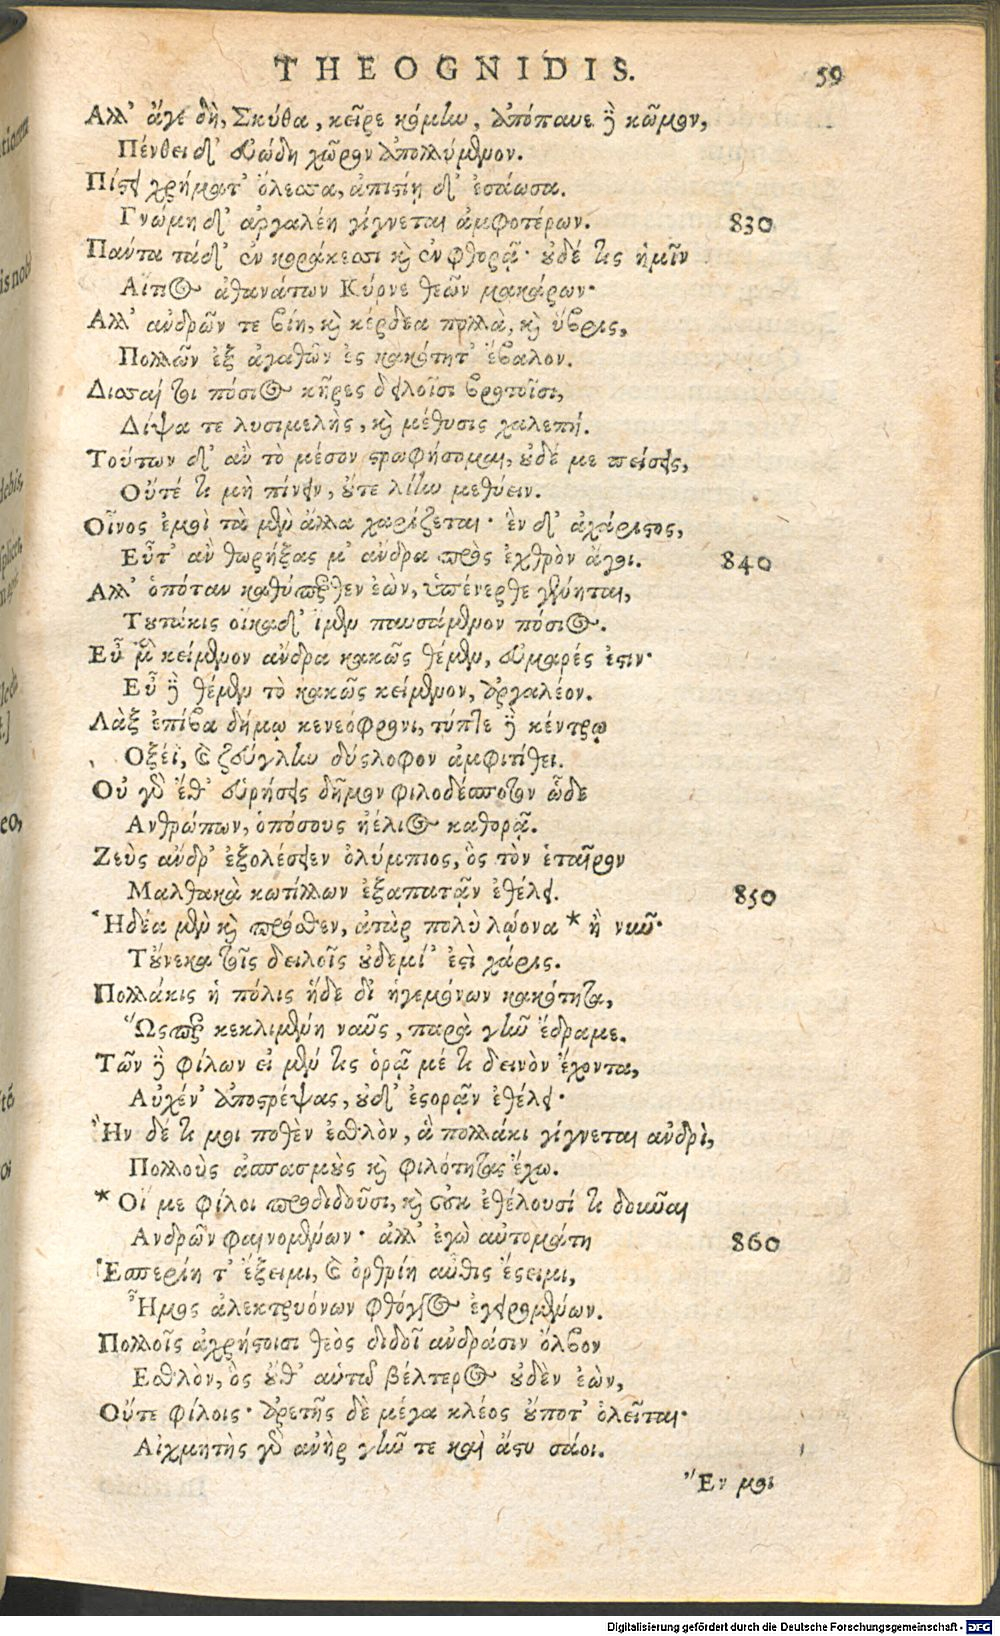 THEOGNIDIS. 59
Ἀλλ' ἄγε δὴ, Σκύθα, κεῖρε κόμην, ἀπόπαυε ἢ κῶμον,
Πένθει δ' εὐώδη χῶρον ἀπολλύμενον.
Πίστει χρήματ' ὄλεσσα, ἀπιστίη δ' ἐσάωσα.
Γνώμη δ' ἀργαλέη γίγνεται ἀμφοτέρων. 830
Πάντα τάδ' ἐν κοράκεσσι καὶ ἐν φθορᾷ· οὐδέ τις ἡμῖν
Αἴτιος ἀθανάτων Κύρνε θεῶν μακάρων·
Ἀλλ' ἀνδρῶν τε βίη, καὶ κέρδεα πολλὰ, καὶ ὕβρις,
Πολλῶν ἐξ ἀγαθῶν ἐς κακότητ' ἔβαλον.
Δισσαί τοι πόσιος κῆρες δειλοῖσι βροτοῖσι,
Δίψα τε λυσιμελὴς, καὶ μέθυσις χαλεπή.
Τούτων δ' ἂν τὸ μέσον στρωφήσομαι, οὐδέ με πείσεις,
Οὔτέ τι μὴ πίνειν, οὔτε λίην μεθύειν.
Οἶνος ἐμοὶ τὰ μὲν ἄλλα χαρίζεται· ἓν δ' ἀχάριστος,
Εὖτ' ἂν θωρήξας μ' ἄνδρα πρὸς ἐχθρὸν ἄγοι. 840
Ἀλλ' ὁπόταν καθύπερθεν ἐὼν, ὑπένερθε γένηται,
Τουτάκις οἴκαδ' ἴμεν παυσάμενον πόσιος.
Εὖ μὲν κείμενον ἄνδρα κακῶς θέμεν, εὐμαρές ἐστιν·
Εὖ δὲ θέμεν τὸ κακῶς κείμενον, ἀργαλέον.
Λὰξ ἐπίβα δήμῳ κενεόφρονι, τύπτε δὲ κέντρῳ
Ὀξέϊ, καὶ ζεύγλην δύσλοφον ἀμφιτίθει.
Οὐ γὰρ ἔθ' εὑρήσεις δῆμον φιλοδέσποτον ὧδε
Ἀνθρώπων, ὁπόσους ἠέλιος καθορᾷ.
Ζεὺς ἄνδρ' ἐξολέσειεν ὀλύμπιος, ὃς τὸν ἑταῖρον
Μαλθακὰ κωτίλλων ἐξαπατᾷν ἐθέλει. 850
Ἡδέα μὲν καὶ πρόσθεν, ἀτὰρ πολὺ λώϊονα * ἢ νῦν·
Τοὔνεκα τοῖς δειλοῖς οὐδεμί' ἐστὶ χάρις.
Πολλάκις ἡ πόλις ἥδε δι' ἡγεμόνων κακότητα,
Ὥσπερ κεκλιμένη ναῦς, παρὰ γῆν ἔδραμε.
Τῶν δὲ φίλων εἰ μέν τις ὁρᾷ μέ τι δεινὸν ἔχοντα,
Αὐχέν' ἀποστρέψας, οὐδ' ἐσορᾷν ἐθέλει·
Ἢν δέ τί μοι ποθὲν ἐσθλὸν, ἃ πολλάκι γίγνεται ἀνδρὶ,
Πολλοὺς ἀσπασμοὺς καὶ φιλότητας ἔχω.
* Οἵ με φίλοι προδιδοῦσι, καὶ οὐκ ἐθέλουσί τι δοῦναι
Ἀνδρῶν φαινομένων· ἀλλ' ἐγὼ αὐτομάτη 860
Ἑσπερίη τ' ἔξειμι, καὶ ὀρθρίη αὖθις ἔσειμι,
Ἦμος ἀλεκτρυόνων φθόγγος ἐγειρομένων.
Πολλοῖς ἀχρήστοισι θεὸς διδοῖ ἀνδράσιν ὄλβον
Ἐσθλὸν, ὃς οὔθ' αὑτῷ βέλτερος οὐδὲν ἐὼν,
Οὔτε φίλοις· ἀρετῆς δὲ μέγα κλέος οὔποτ' ὀλεῖται·
Αἰχμητὴς γὰρ ἀνὴρ γῆν τε καὶ ἄστυ σάοι.
Ἔν μοι
Digitalisierung gefördert durch die Deutsche Forschungsgemeinschaft - DFG